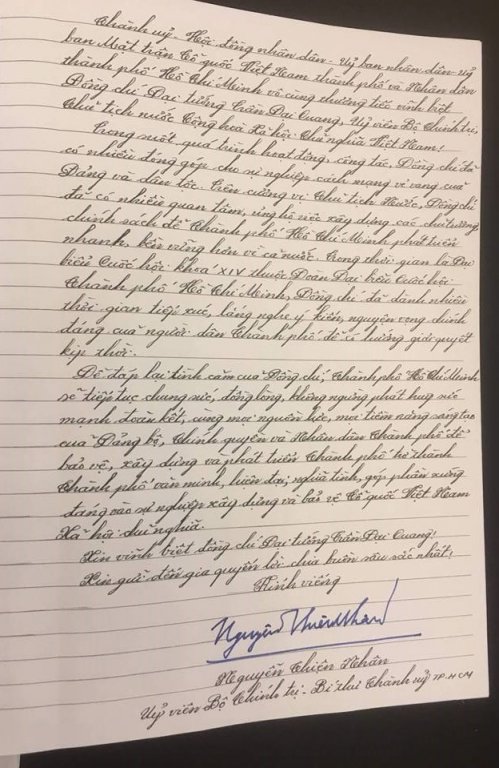 Thành uỷ - Hội đồng nhân dân - Uỷ ban nhân dân - Uỷ
ban Mặt trận Tổ quốc Việt Nam thành phố và Nhân dân
thành phố Hồ Chí Minh vô cùng thương tiếc vĩnh biệt
Đồng chí Đại tướng Trần Đại Quang, Uỷ viên Bộ Chính trị,
Chủ tịch nước Cộng hoà Xã hội Chủ nghĩa Việt Nam!
Trong suốt quá trình hoạt động, công tác, Đồng chí đã
có nhiều đóng góp cho sự nghiệp cách mạng vẻ vang của
Đảng và dân tộc. Trên cương vị Chủ tịch Nước, Đồng chí
đã có nhiều quan tâm, ủng hộ việc xây dựng các chủ trương,
chính sách để Thành phố Hồ Chí Minh phát triển
nhanh, bền vững hơn vì cả nước. Trong thời gian là Đại
biểu Quốc hội khoá XIV thuộc Đoàn Đại biểu Quốc hội
Thành phố Hồ Chí Minh, Đồng chí đã dành nhiều
thời gian tiếp xúc, lắng nghe ý kiến, nguyện vọng chính
đáng của người dân Thành phố để có hướng giải quyết
kịp thời.
Để đáp lại tình cảm của Đồng chí, Thành phố Hồ Chí Minh
sẽ tiếp tục chung sức, đồng lòng, không ngừng phát huy sức
mạnh đoàn kết, cùng mọi nguồn lực, mọi tiềm năng sáng tạo
của Đảng bộ, Chính quyền và Nhân dân Thành phố để
bảo vệ, xây dựng và phát triển Thành phố trở thành
Thành phố văn minh, hiện đại; nghĩa tình, góp phần xứng
đáng vào sự nghiệp xây dựng và bảo vệ Tổ quốc Việt Nam
Xã hội chủ nghĩa.
Xin vĩnh biệt đồng chí Đại tướng Trần Đại Quang!
Xin gửi đến gia quyến lời chia buồn sâu sắc nhất!
Kính viếng
Nguyễn Thiện Nhân
Nguyễn Thiện Nhân
Uỷ viên Bộ Chính trị - Bí thư Thành uỷ TP. HCM